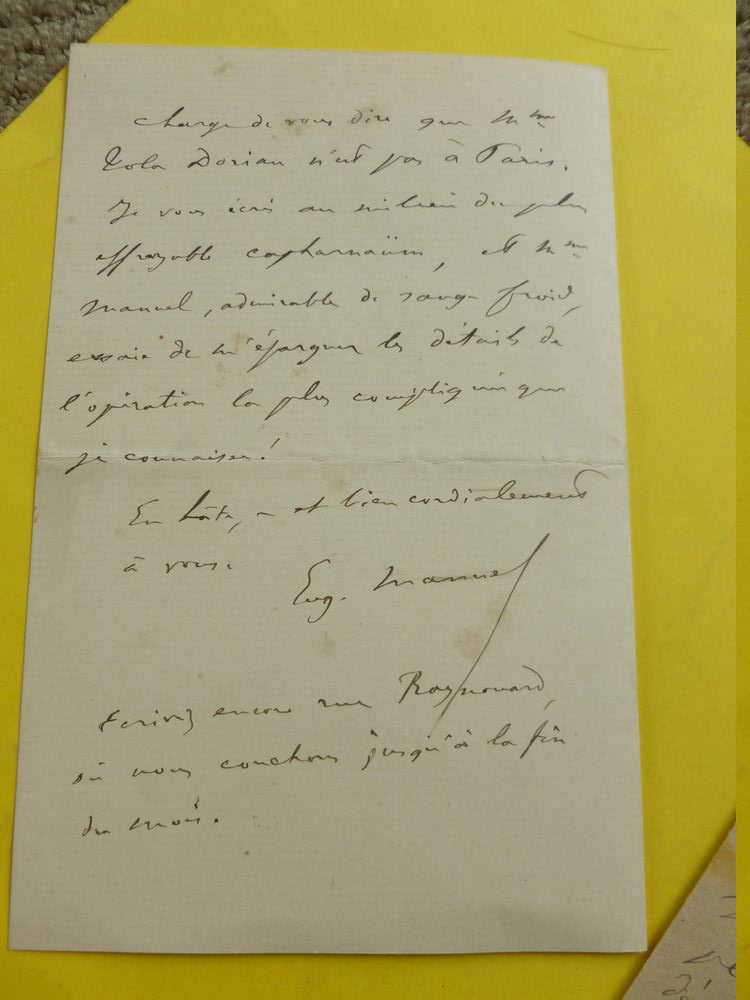 charge de vous dire que Mme
Tola Dorian n'est pas à Paris.
Je vous écris au milieu du plus
effroyable capharnaüm, et Mme
Manuel, admirable de sang-froid,
essaie de m'épargner les détails de
l'opération la plus compliquée que
je connaisse !
En hâte, – et bien cordialement
à vous.
Eug. Manuel
Ecrivez encore rue Raynouard,
où nous couchons jusqu'à la fin
du mois.